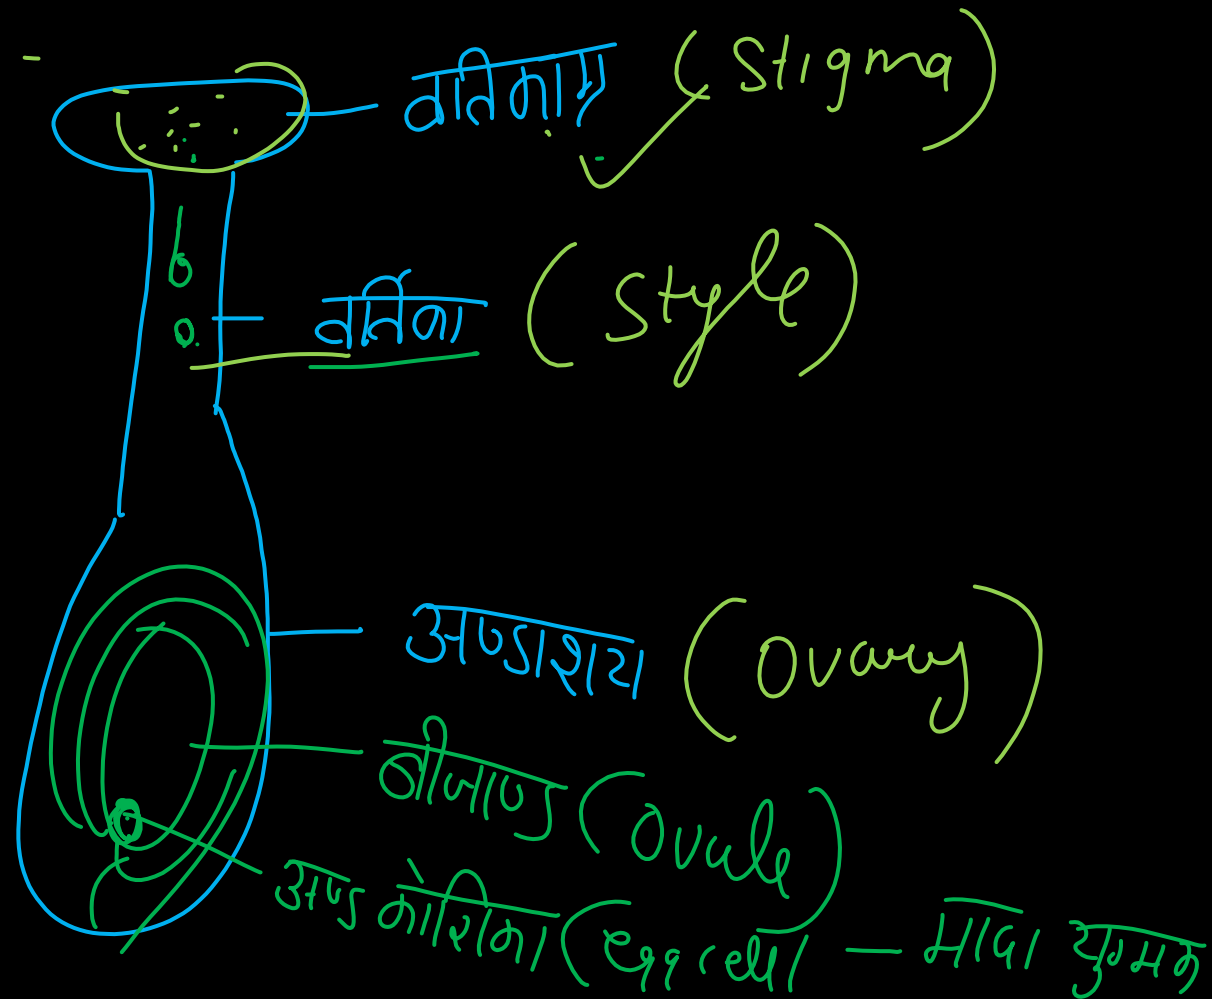 वर्तिकाग्र (Stigma)
वर्तिका (Style)
अण्डाशय (Ovary)
बीजाण्ड (Ovule)
अण्ड कोशिका (Egg cell) - मादा युग्मक